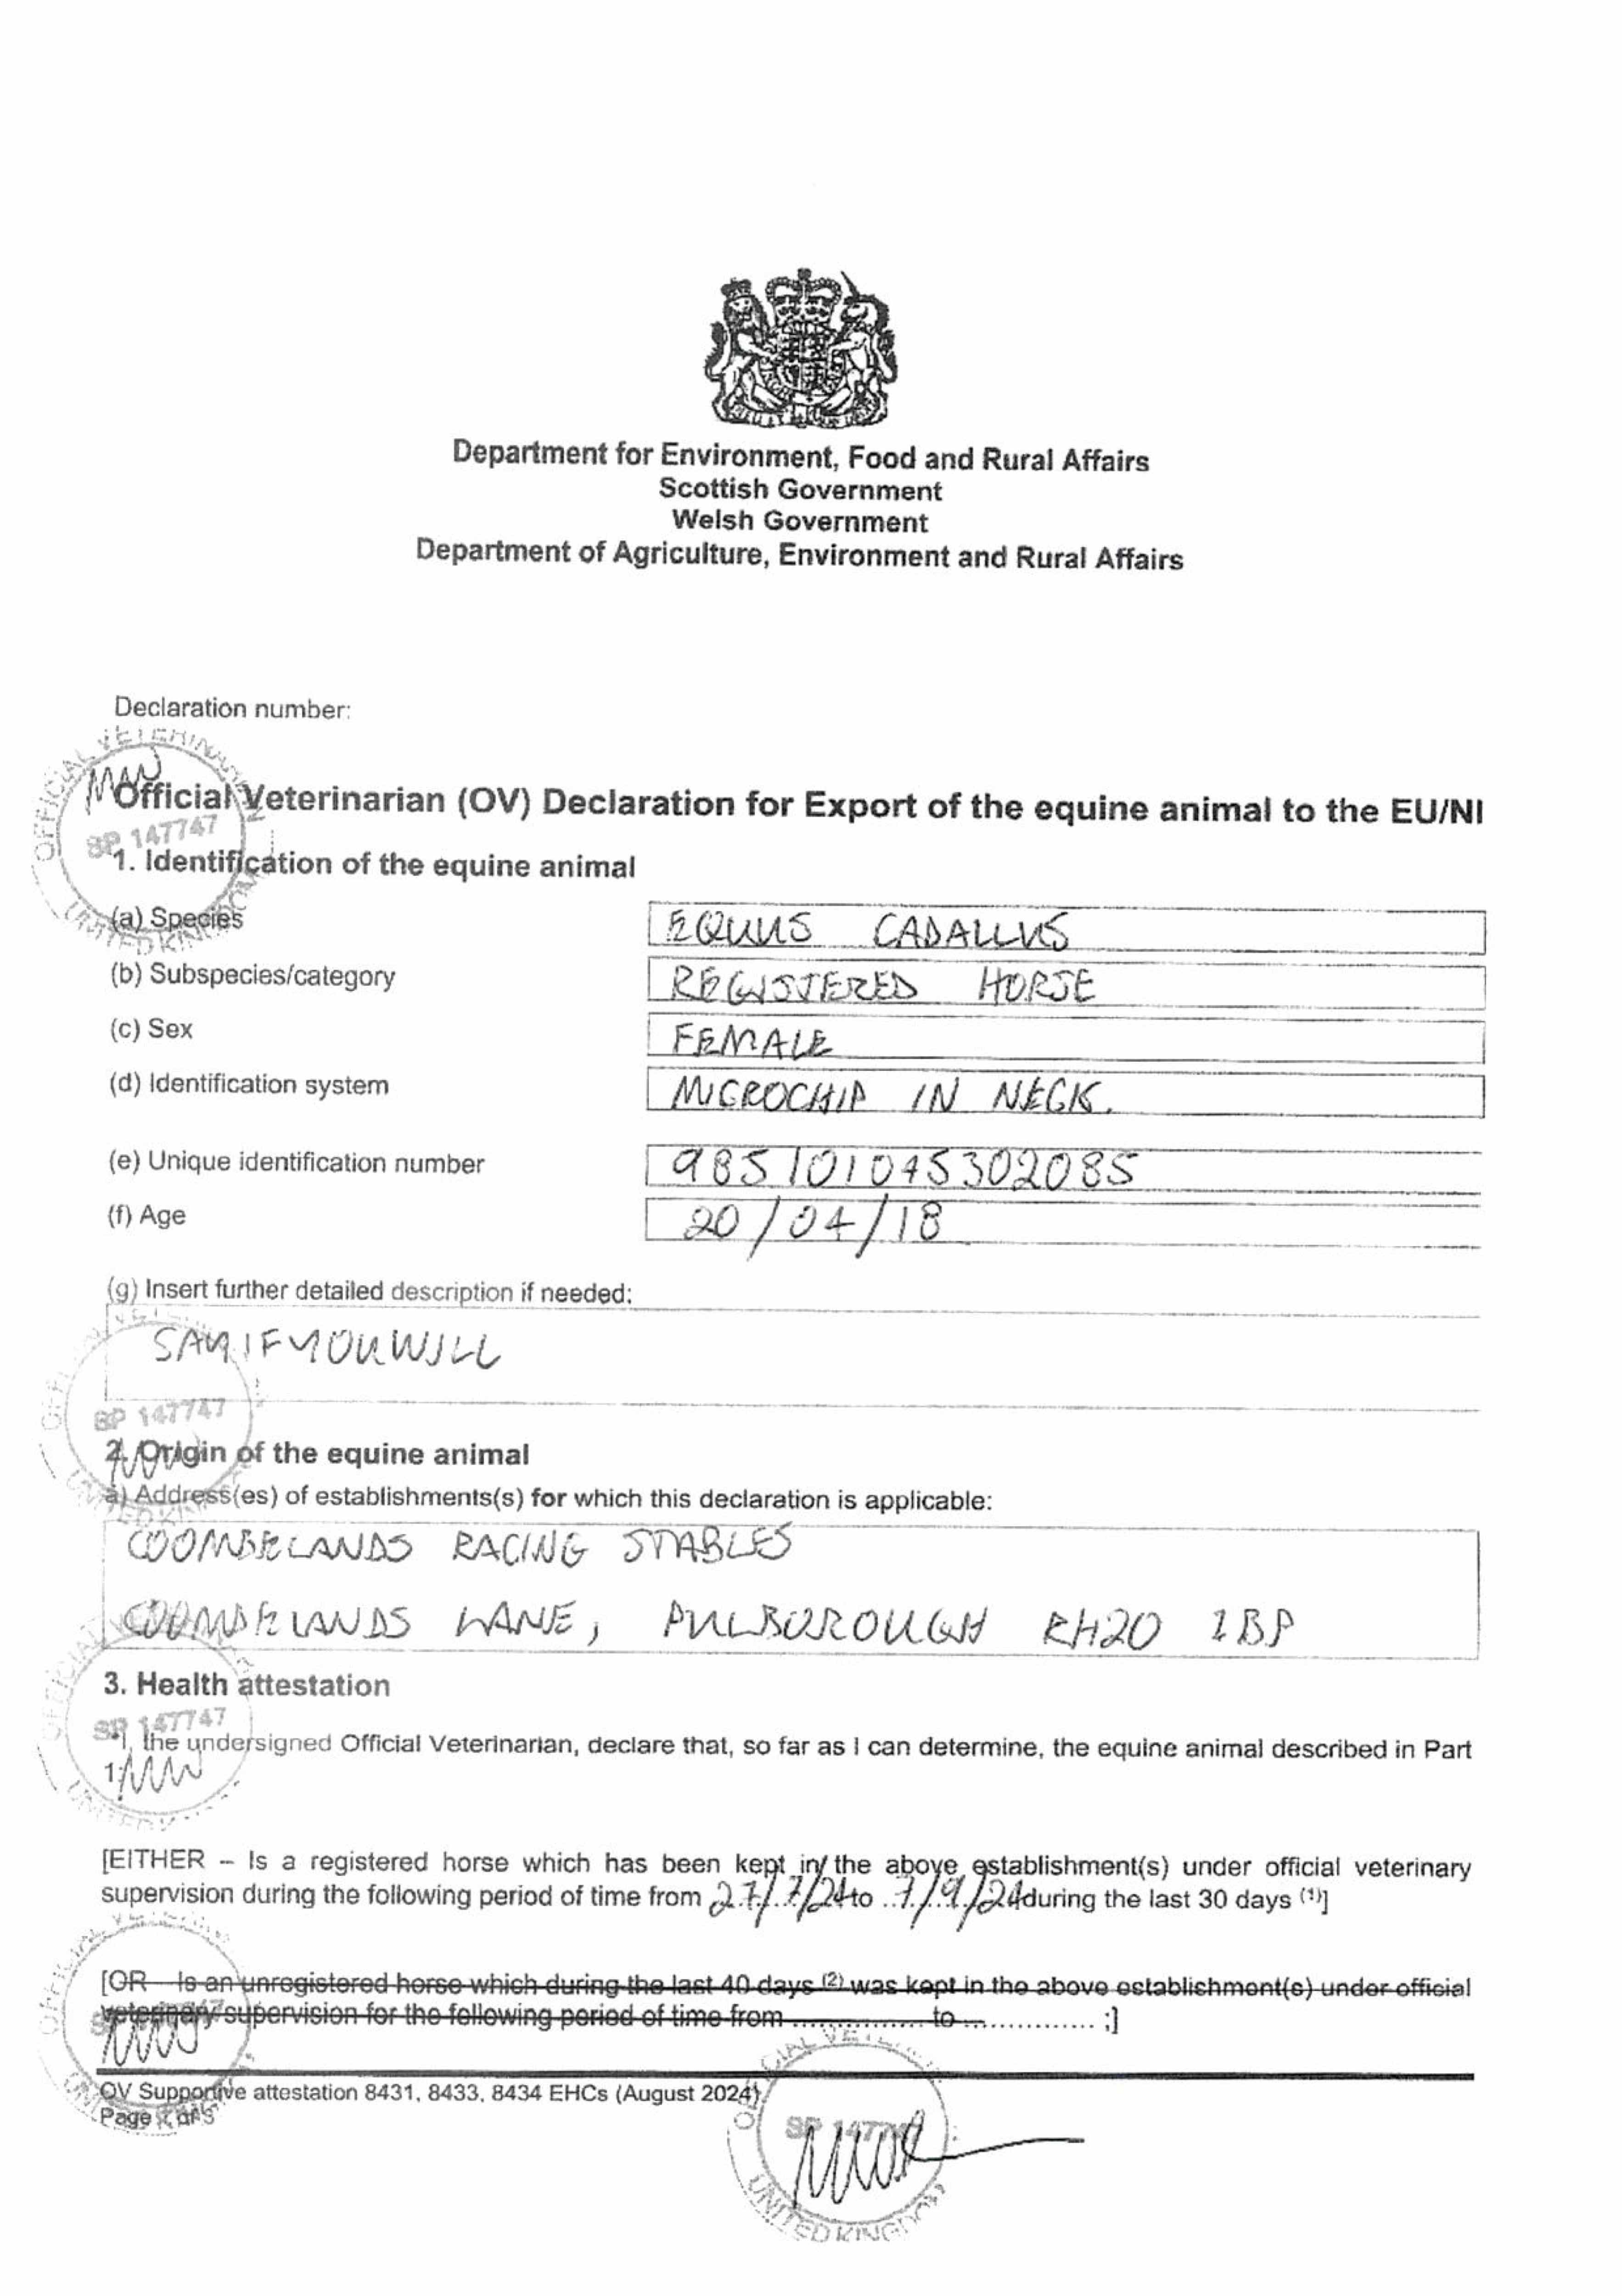 Department for Environment, Food and Rural Affairs
Scottish Government
Welsh Government
Department of Agriculture, Environment and Rural Affairs
Declaration number:
Official Veterinarian (OV) Declaration for Export of the equine animal to the EU/NI
OFFICIAL VETERINARIAN
SP 147747
UNITED KINGDOM
1. Identification of the equine animal
(a) Species EQUUS CABALLUS
(b) Subspecies/category REGISTERED HORSE
(c) Sex FEMALE
(d) Identification system MICROCHIP IN NECK.
(e) Unique identification number 985101045302085
(f) Age 20/04/18
(g) Insert further detailed description if needed:
SAYIFYOUWILL
SP 147747
2. Origin of the equine animal
a) Address(es) of establishments(s) for which this declaration is applicable:
COOMBELANDS RACING STABLES
COOMBELANDS LANE, PULBOROUGH RH20 1BP
3. Health attestation
SP 147747
*I, the undersigned Official Veterinarian, declare that, so far as I can determine, the equine animal described in Part
1:
[EITHER – Is a registered horse which has been kept in the above establishment(s) under official veterinary
supervision during the following period of time from 27/7/24 to 7/9/24 during the last 30 days (1)]
[OR – Is an unregistered horse which during the last 40 days (2) was kept in the above establishment(s) under official
veterinary supervision for the following period of time from .............. to .............. ;]
OV Supportive attestation 8431, 8433, 8434 EHCs (August 2024)
Page
SP 147747
UNITED KINGDOM